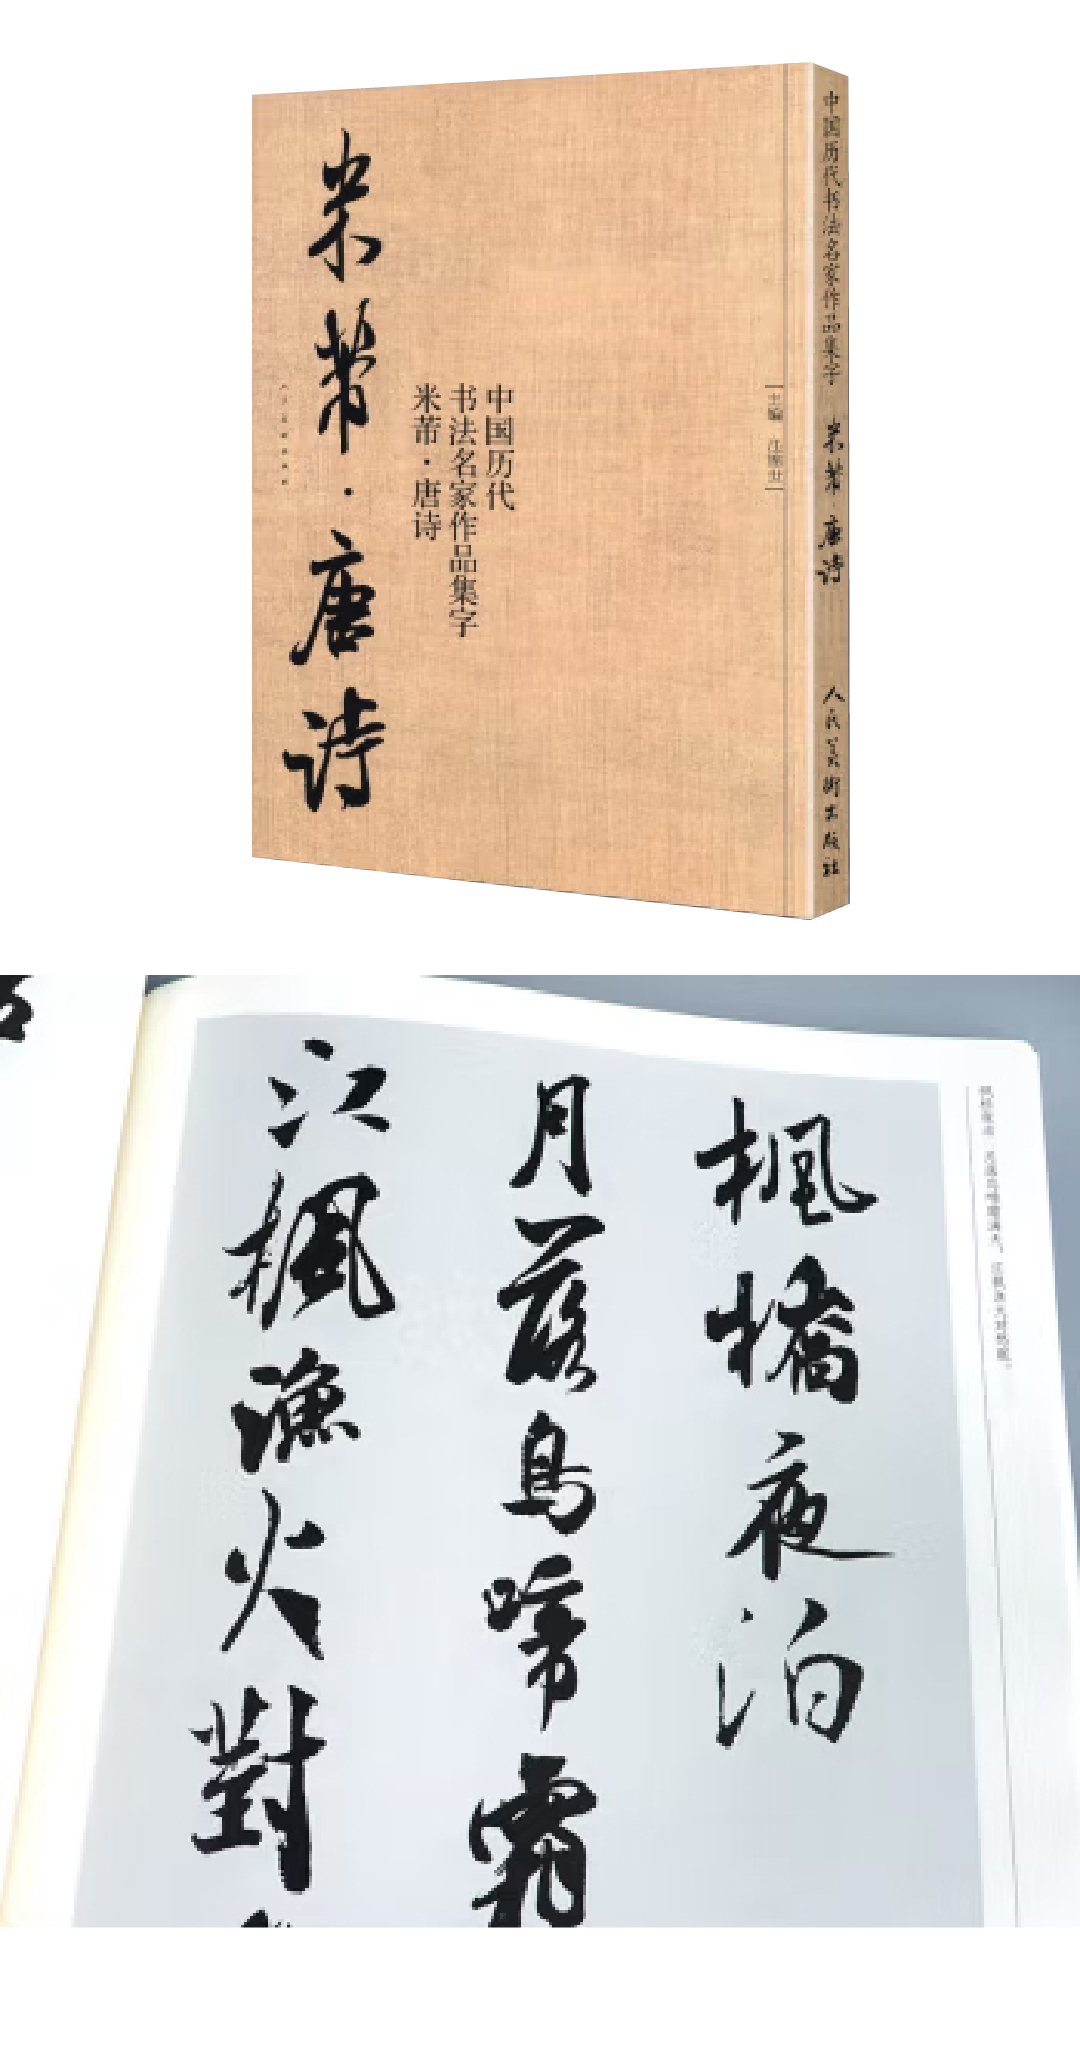 中国历代书法名家作品集字 米芾 唐诗 人民美術出版社
主编
中国历代
书法名家作品集字
米芾·唐诗
米芾·唐诗
枫桥夜泊 月落乌啼霜满天，江枫渔火对愁眠。
楓橋夜泊
月落烏啼霜
江楓漁火對